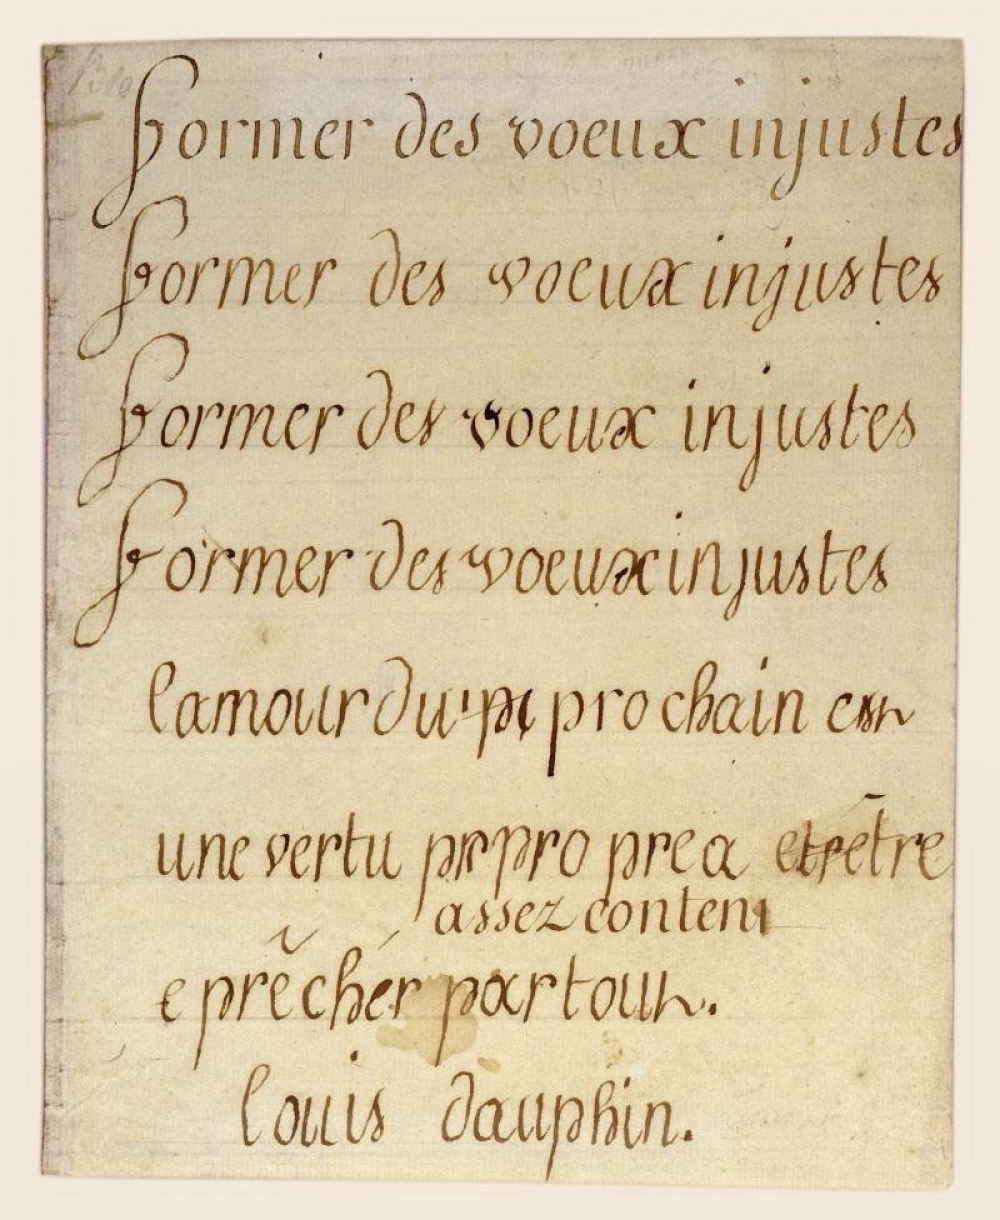 former des voeux injustes
former des voeux injustes
former des voeux injustes
former des voeux injustes
l'amour du prochain est
une vertu pr propre a être
assez content
e prêchér partout.
louis dauphin.